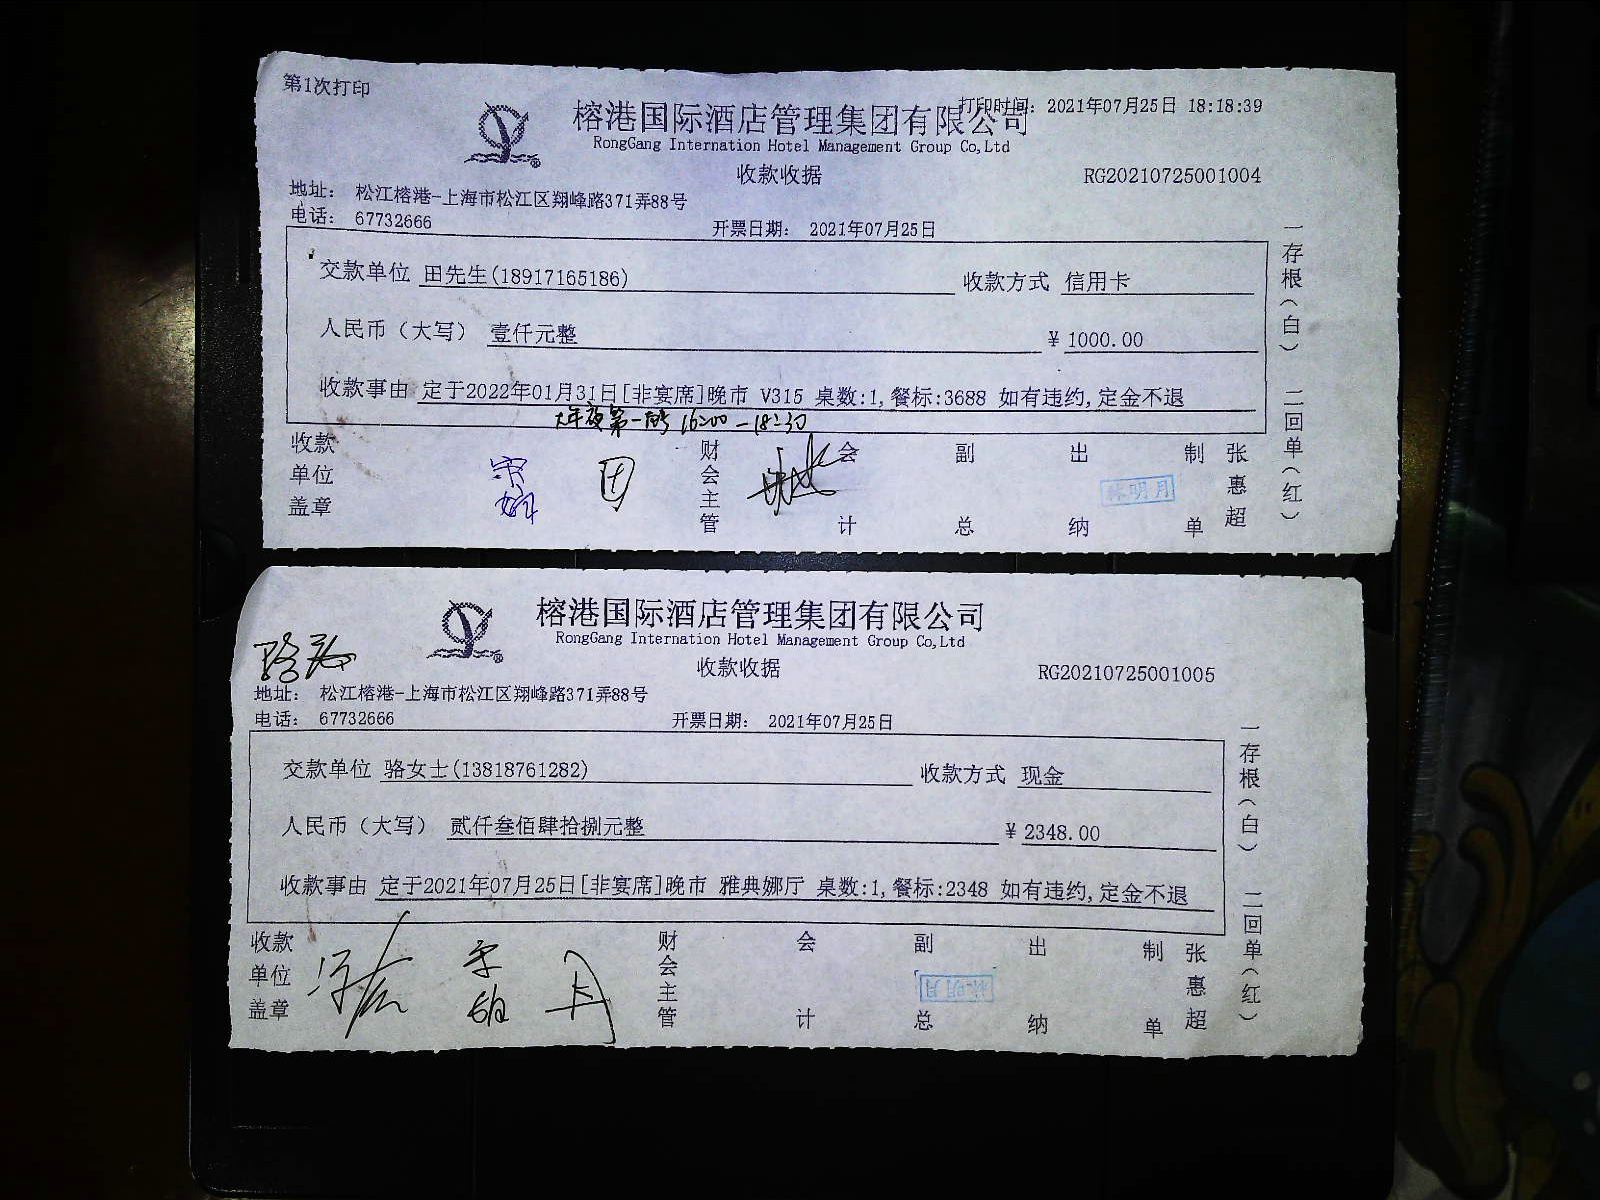 第1次打印
榕港国际酒店管理集团有限公司
打印时间: 2021年07月25日 18:18:39
RongGang Internation Hotel Management Group Co,Ltd
收款收据
RG20210725001004
地址: 松江榕港-上海市松江区翔峰路371弄88号
电话: 67732666
开票日期: 2021年07月25日
交款单位 田先生(18917165186) 收款方式 信用卡
人民币（大写） 壹仟元整 ¥ 1000.00
收款事由 定于2022年01月31日[非宴席]晚市 V315 桌数:1,餐标:3688 如有违约,定金不退
大年夜第一时 16:00-18:30
收款单位盖章 财会主管 会计 副总 出纳 制单 张惠超
林明月
一存根(白) 二回单(红)
榕港国际酒店管理集团有限公司
RongGang Internation Hotel Management Group Co,Ltd
收款收据
RG20210725001005
地址: 松江榕港-上海市松江区翔峰路371弄88号
电话: 67732666
开票日期: 2021年07月25日
交款单位 骆女士(13818761282) 收款方式 现金
人民币（大写） 贰仟叁佰肆拾捌元整 ¥ 2348.00
收款事由 定于2021年07月25日[非宴席]晚市 雅典娜厅 桌数:1,餐标:2348 如有违约,定金不退
收款单位盖章 财会主管 会计 副总 出纳 制单 张惠超
林明月
一存根(白) 二回单(红)